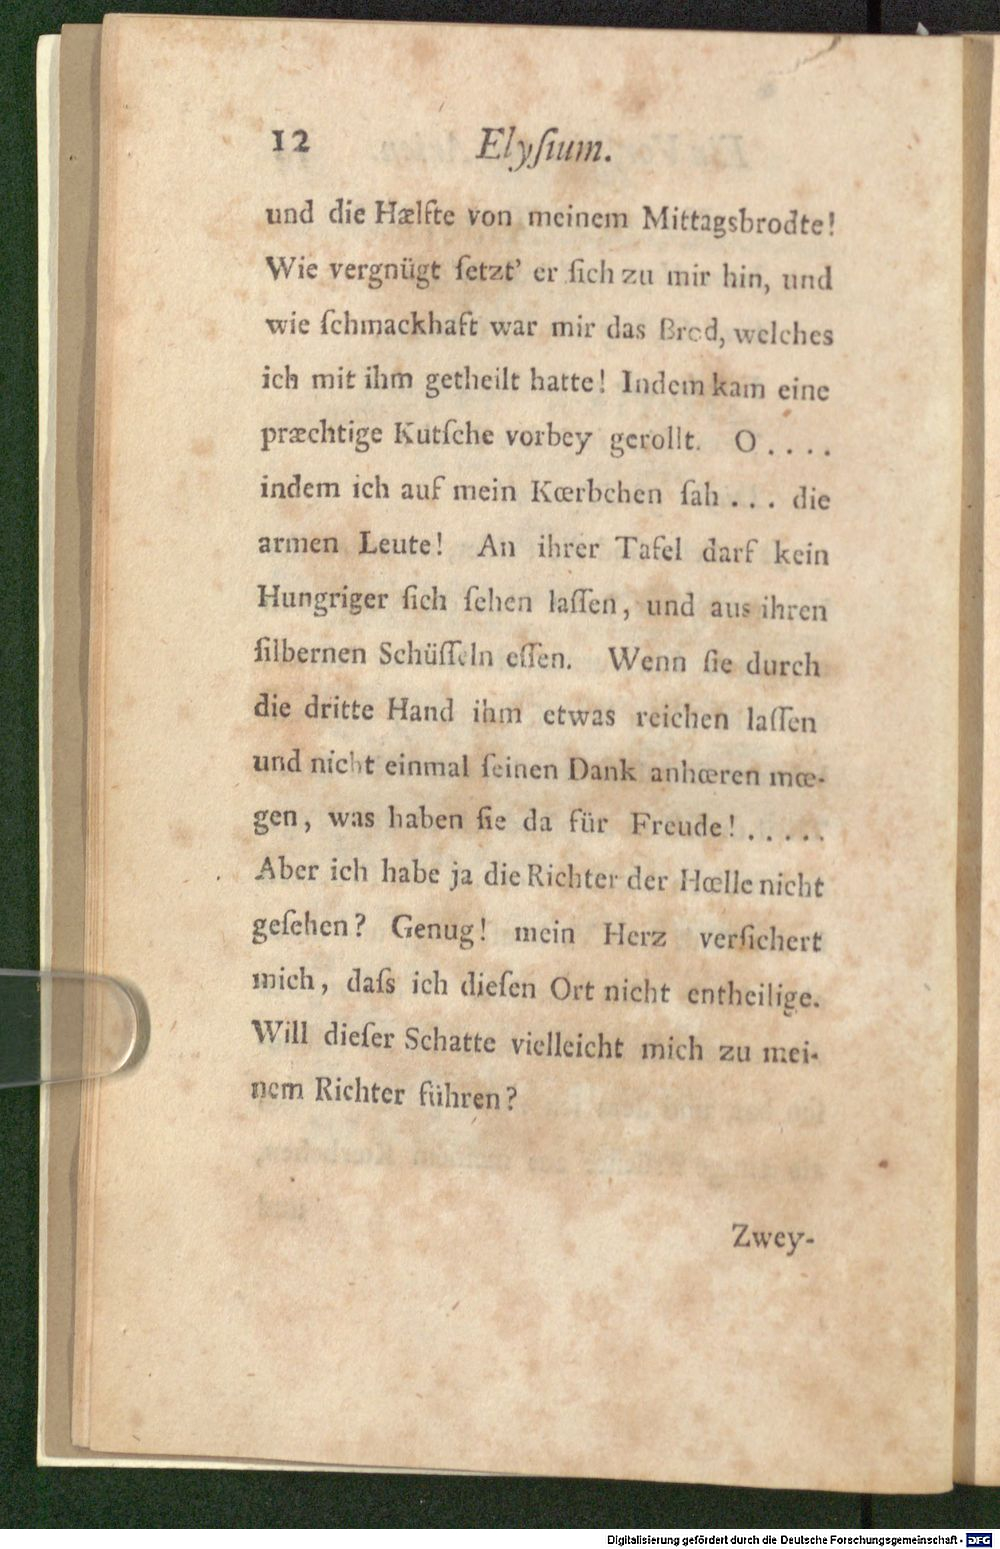 12 Elyſium.
und die Hælfte von meinem Mittagsbrodte!
Wie vergnügt ſetzt' er ſich zu mir hin, und
wie ſchmackhaft war mir das Brod, welches
ich mit ihm getheilt hatte! Indem kam eine
præchtige Kutſche vorbey gerollt. O . . . .
indem ich auf mein Kœrbchen ſah . . . die
armen Leute! An ihrer Tafel darf kein
Hungriger ſich ſehen laſſen, und aus ihren
ſilbernen Schüſſeln eſſen. Wenn ſie durch
die dritte Hand ihm etwas reichen laſſen
und nicht einmal ſeinen Dank anhœren mœ-
gen, was haben ſie da für Freude! . . . . .
Aber ich habe ja die Richter der Hœlle nicht
geſehen? Genug! mein Herz verſichert
mich, daſs ich dieſen Ort nicht entheilige.
Will dieſer Schatte vielleicht mich zu mei-
nem Richter führen?
Zwey-
Digitalisierung gefördert durch die Deutsche Forschungsgemeinschaft - DFG